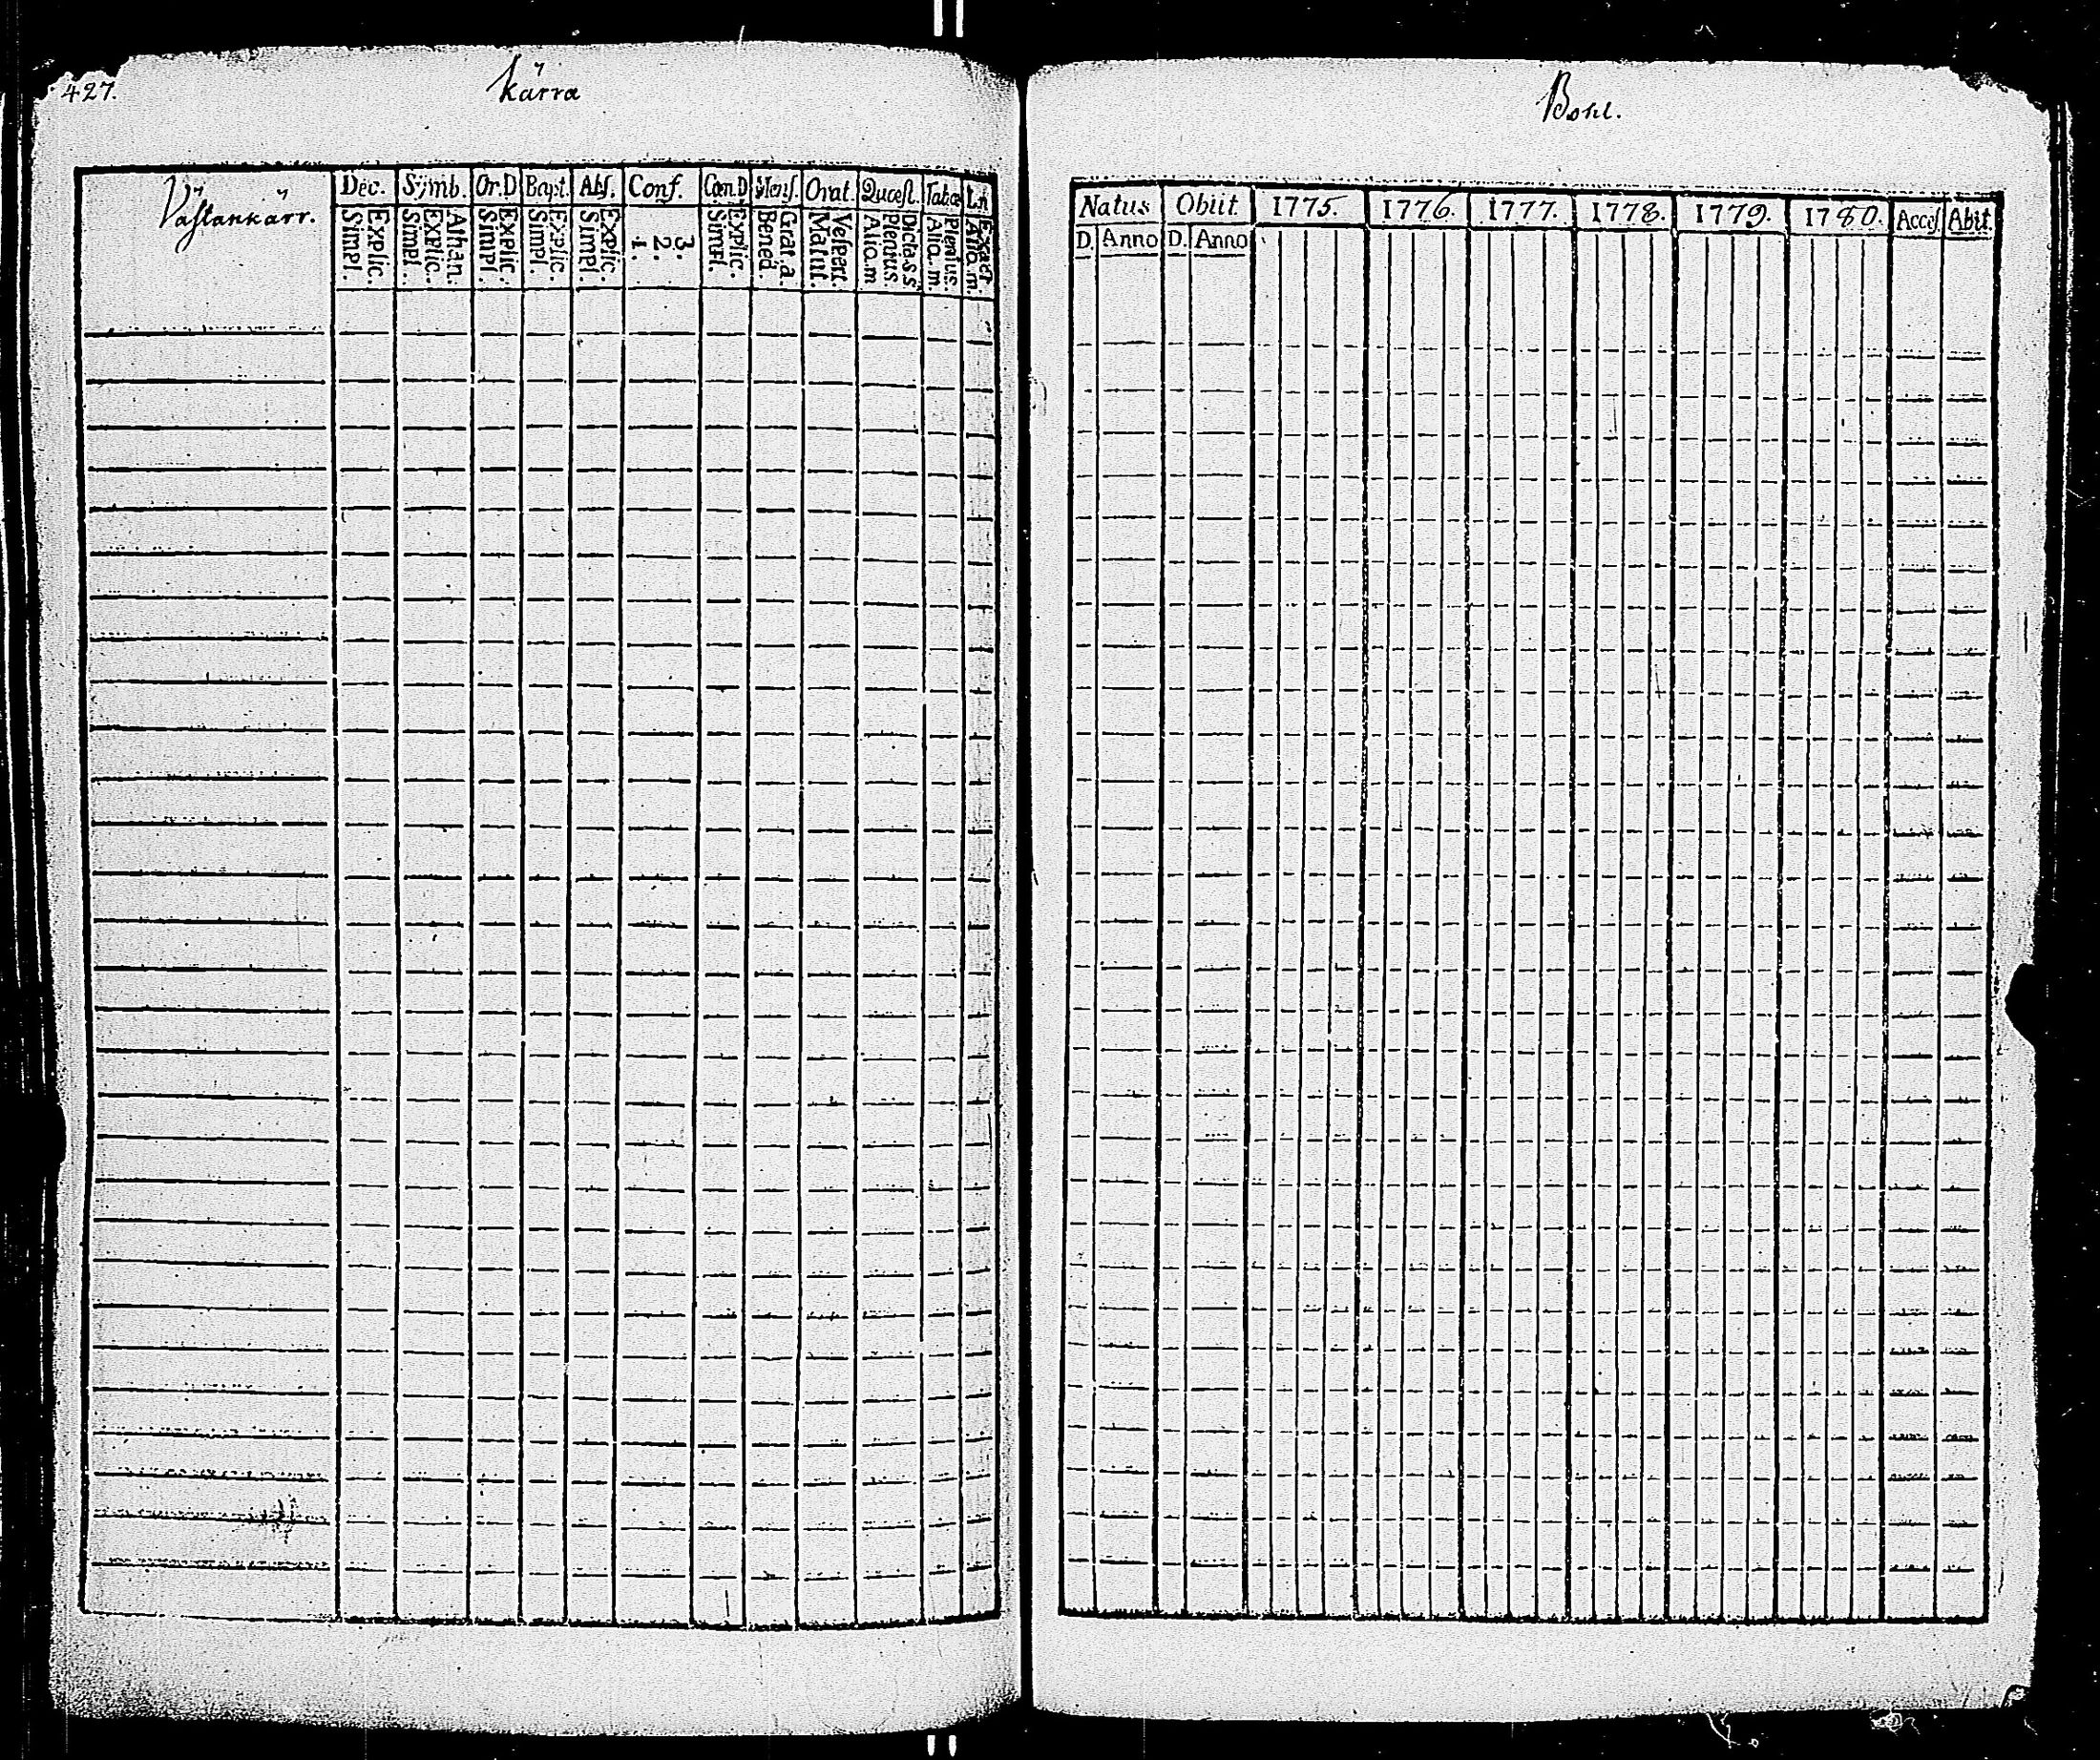 427.
Kärra
Västankärr.
Dec. Sÿmb. Or.D Bapt. Abs. Conf. Cœn.D Mens. Orat. Quæst. Tabæ
Explic. Simpl. Athan. Explic. Simpl. Explic. Simpl. Explic. Simpl. Explic. Simpl. 3. 2. 1. Explic. Simpl. Grat. a. Bened. Vespert. Matut. Dict. a s s. Plenius. Alio. m Plenius. Alio. m. Exact Alio. m.
Bohl.
Natus Obiit 1775. 1776. 1777. 1778. 1779. 1780. Acces. Abit.
D. Anno D. Anno